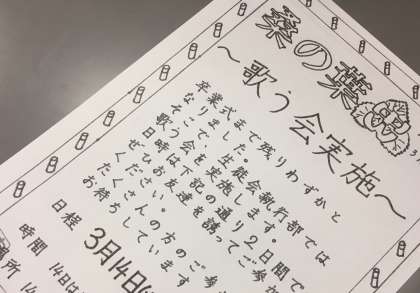 桑の葉
～歌う会実施～
卒業式まで残りわずかと
なりました。生徒会執行部では
そこで、
歌う会を実施します。
日時は下記の通り2日間で
ぜひお友達を誘ってご参
ください。
たくさんの方のご参
お待ちしています
日程 3月14日
時間 14日は
場所 14